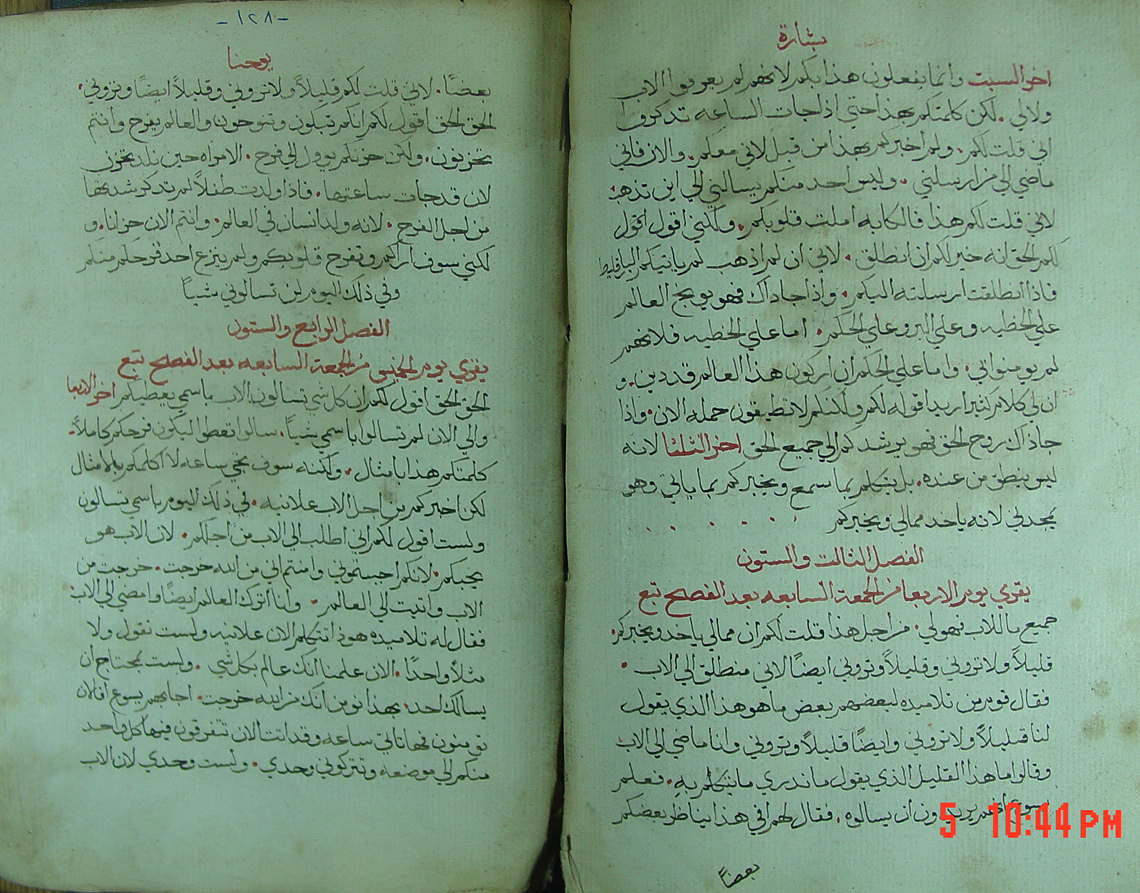 بشارة
اخر السبت وانما يفعلون هذا بكم لانهم لم يعرفوا الاب
ولا لي. لكن كلمتكم بهذا حتي اذا جات الساعه تذكروا
اني قلت لكم. ولم اخبركم بهذا من قبل لاني معكم. والان فاني
ماضي الي من ارسلني. وليس احد منكم يسالني الي اين تذهب
لاني قلت لكم هذا فالكابه املت قلوبكم. ولكني اقول اقول
لكم الحق انه خير لكم ان انطلق. لاني ان لم اذهب لم ياتيكم البارقليط
فاذا انطلقت ارسلته اليكم. واذا جا داك فهو يوبخ العالم
علي الخطيه وعلي البر وعلي الحكم. اما علي الخطيه فلانهم
لم يومنوا بي. واما علي الحكم ان اركون هذا العالم قد دين. و
ان لي كلام كثير اريد اقوله لكم ولكنكم لا تطيقون حمله الان. واذا
جا داك روح الحق فهو يرشدكم الي جميع الحق اخر الثلثا لانه
ليس ينطق من عنده. بل يتكلم بما سمع ويخبركم بما ياتي وهو
يمجدني لانه ياخد مما لي ويخبركم
الفصل الثالت والستون
يقري يوم الاربعا من الجمعة السابعه بعد الفصح تبع
جميع ما للاب فهو لي. من اجل هذا قلت لكم ان مما لي ياخد ويخبركم.
قليلاً ولا تروني وقليلاً وتروني ايضاً لاني منطلق الي الاب.
فقال قوم من تلاميده لبعضهم بعض ما هو هذا الذي يقول
لنا قليلاً ولا تروني وايضاً قليلاً وتروني وانا ماضي الي الاب
وقالوا ما هذا القليل الذي يقول ما ندري ما يتكلم به. فعلم
يسوع انهم يريدون ان يسالوه. فقال لهم افي هذا يناظر بعضكم
بعضاً
-١٢٨-
يوحنا
بعضاً. لاني قلت لكم قليلاً ولا تروني وقليلاً ايضاً وتروني.
الحق الحق اقول لكم انكم تبكون وتنوحون والعالم يفرح وانتم
تحزنون. ولكن حزنكم يوول الي فرح. الامراه حين تلد تحزن
لان قد جات ساعتها. فاذا ولدت طفلاً لم تدكر شدتها
من اجل الفرح. لانه ولد انسان في العالم. وانتم الان حزانا. و
لكني سوف اراكم وتفرح قلوبكم ولم ينزع احد فرحكم منكم
وفي ذلك اليوم لن تسالوني شيياً
الفصل الرابع والستون
يقري يوم الخميس من الجمعة السابعه بعد الفصح تبع
الحق الحق اقول لكم ان كل شي تسالون الاب باسمي يعطيكم اخر الاربعا
والي الان لم تسالوا باسمي شيياً. سالوا تعطوا ليكون فرحكم كاملاً.
كلمتكم هذا بامثال. ولكنه سوف تجي ساعه لا اكلمكم بالامثال
لكن اخبركم من اجل الاب علانيه. في ذلك اليوم باسمي تسالون
ولست اقول لكم اني اطلب الي الاب من اجلكم. لان الاب هو
يحبكم. لانكم احببتموني وامنتم اني من الله خرجت. خرجت من
الاب واتيت الي العالم. وانا اترك العالم ايضاً وامضي الي الاب
فقال له تلاميده هودا تتكلم الان علانيه ولست تقول ولا
مثلاً واحداً. الان علمنا انك عالم بكل شي. ولست بمحتاج ان
يسالك احد. بهذا نومن انك من الله خرجت. اجابهم يسوع افالان
تومنون فها تاتي ساعه وقد اتت الان تتفرقون فيها كل واحد
منكم الي موضعه وتتركوني وحدي. ولست وحدي لان الاب
5 10:44 PM